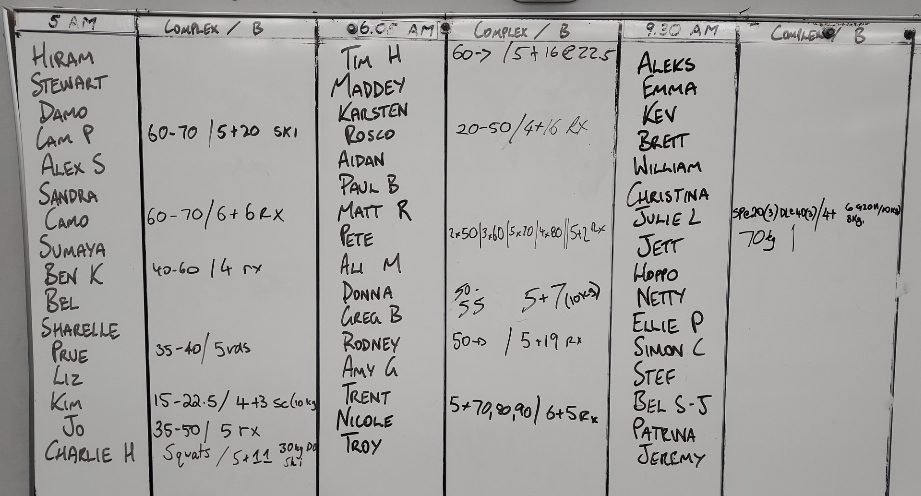 5 AM COMPLEX / B 06.00 AM COMPLEX / B 9.30 AM COMPLEX / B
HIRAM TIM H 60-> / 5+16@22.5 ALEKS
STEWART MADDEY EMMA
DAMO KARSTEN KEV
CAM P 60-70 / 5+20 SKI ROSCO 20-50/4+16 RX BRETT
ALEX S AIDAN WILLIAM
SANDRA PAUL B CHRISTINA
CAMO 60-70/6+6 RX MATT R JULIE L SP@20(3) DL@40(3)/4+ 8kg.
SUMAYA PETE 2x50|3x60|5x70|4x80||5+2 Rx JETT 70kg |
BEN K 40-60 / 4 rx ALI M HOPPO
BEL DONNA 50- 55 5+7 (10kg) NETTY
SHARELLE GREG B ELLIE P
PRUE 35-40/ 5 rds RODNEY 50-> / 5+19 RX SIMON C
LIZ AMY G STEF
KIM 15-22.5/ 4+3 Sc(10kg TRENT 5x70,80,90/ 6+5 Rx BEL S-J
JO 35-50/ 5 rx NICOLE PATRINA
CHARLIE H Squats / 5+11 30kg DB Ski TROY JEREMY